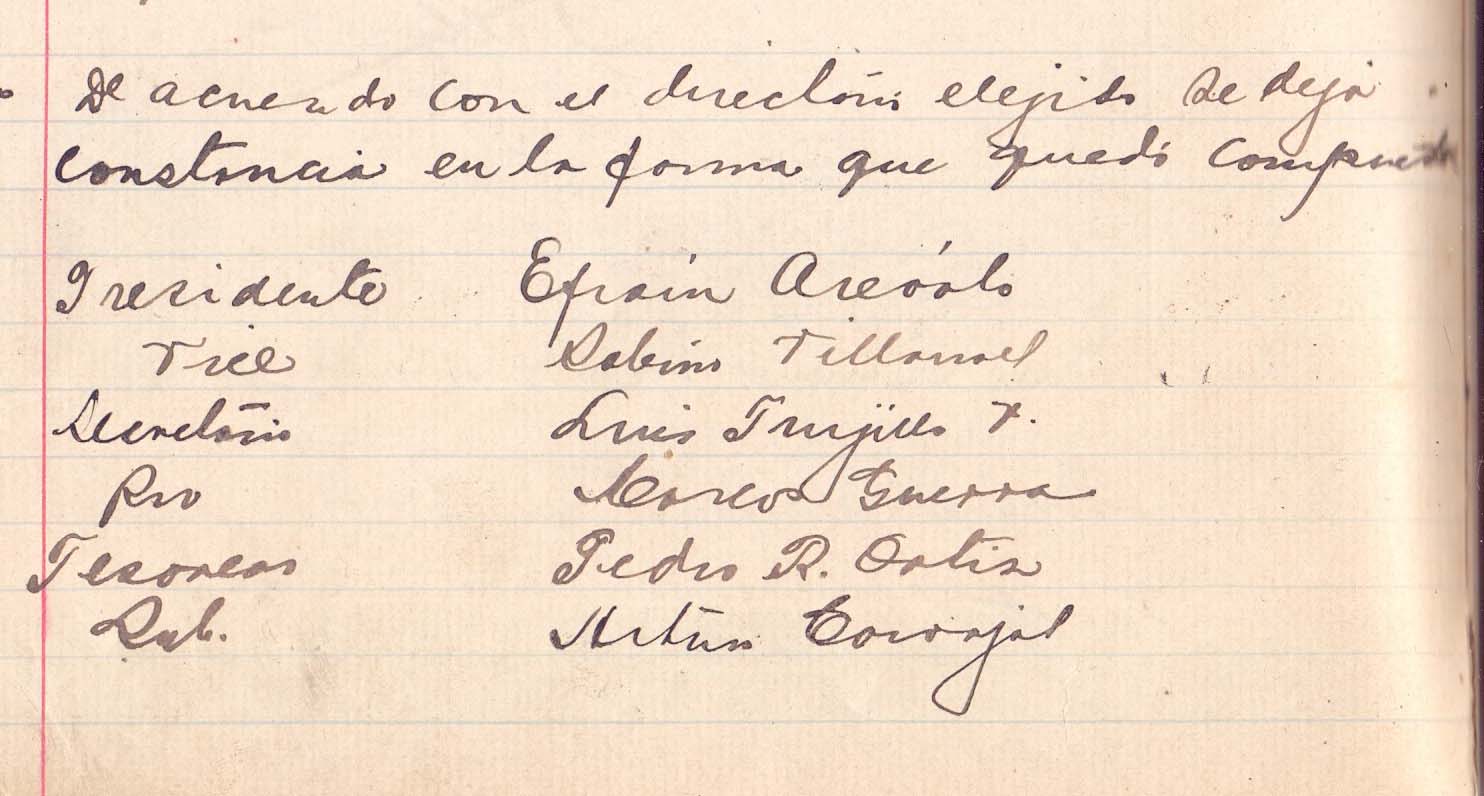 De acuerdo con el directorio elejido se deja
constancia en la forma que quedó compuesto
Presidente Efraín Arévalo
Vice Sabino Villarroel
Secretario Luis Trujillo V.
Pro Marcos Guerra
Tesorero Pedro R. Ortiz
Sub. Arturo Carvajal